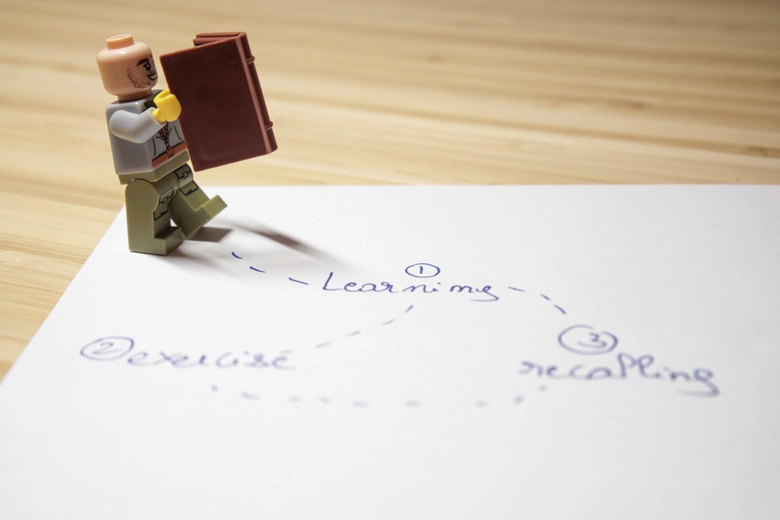 ① Learning
② exercise
③ recalling